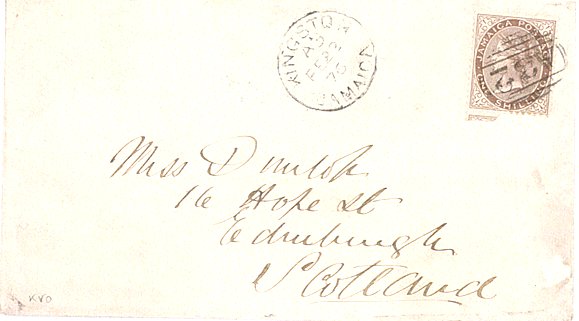 KINGSTON
JAMAICA
JAMAICA POSTAGE
ONE SHILLING
Miss Dunlop
16 Hope St
Edinburgh
Scotland
KVO